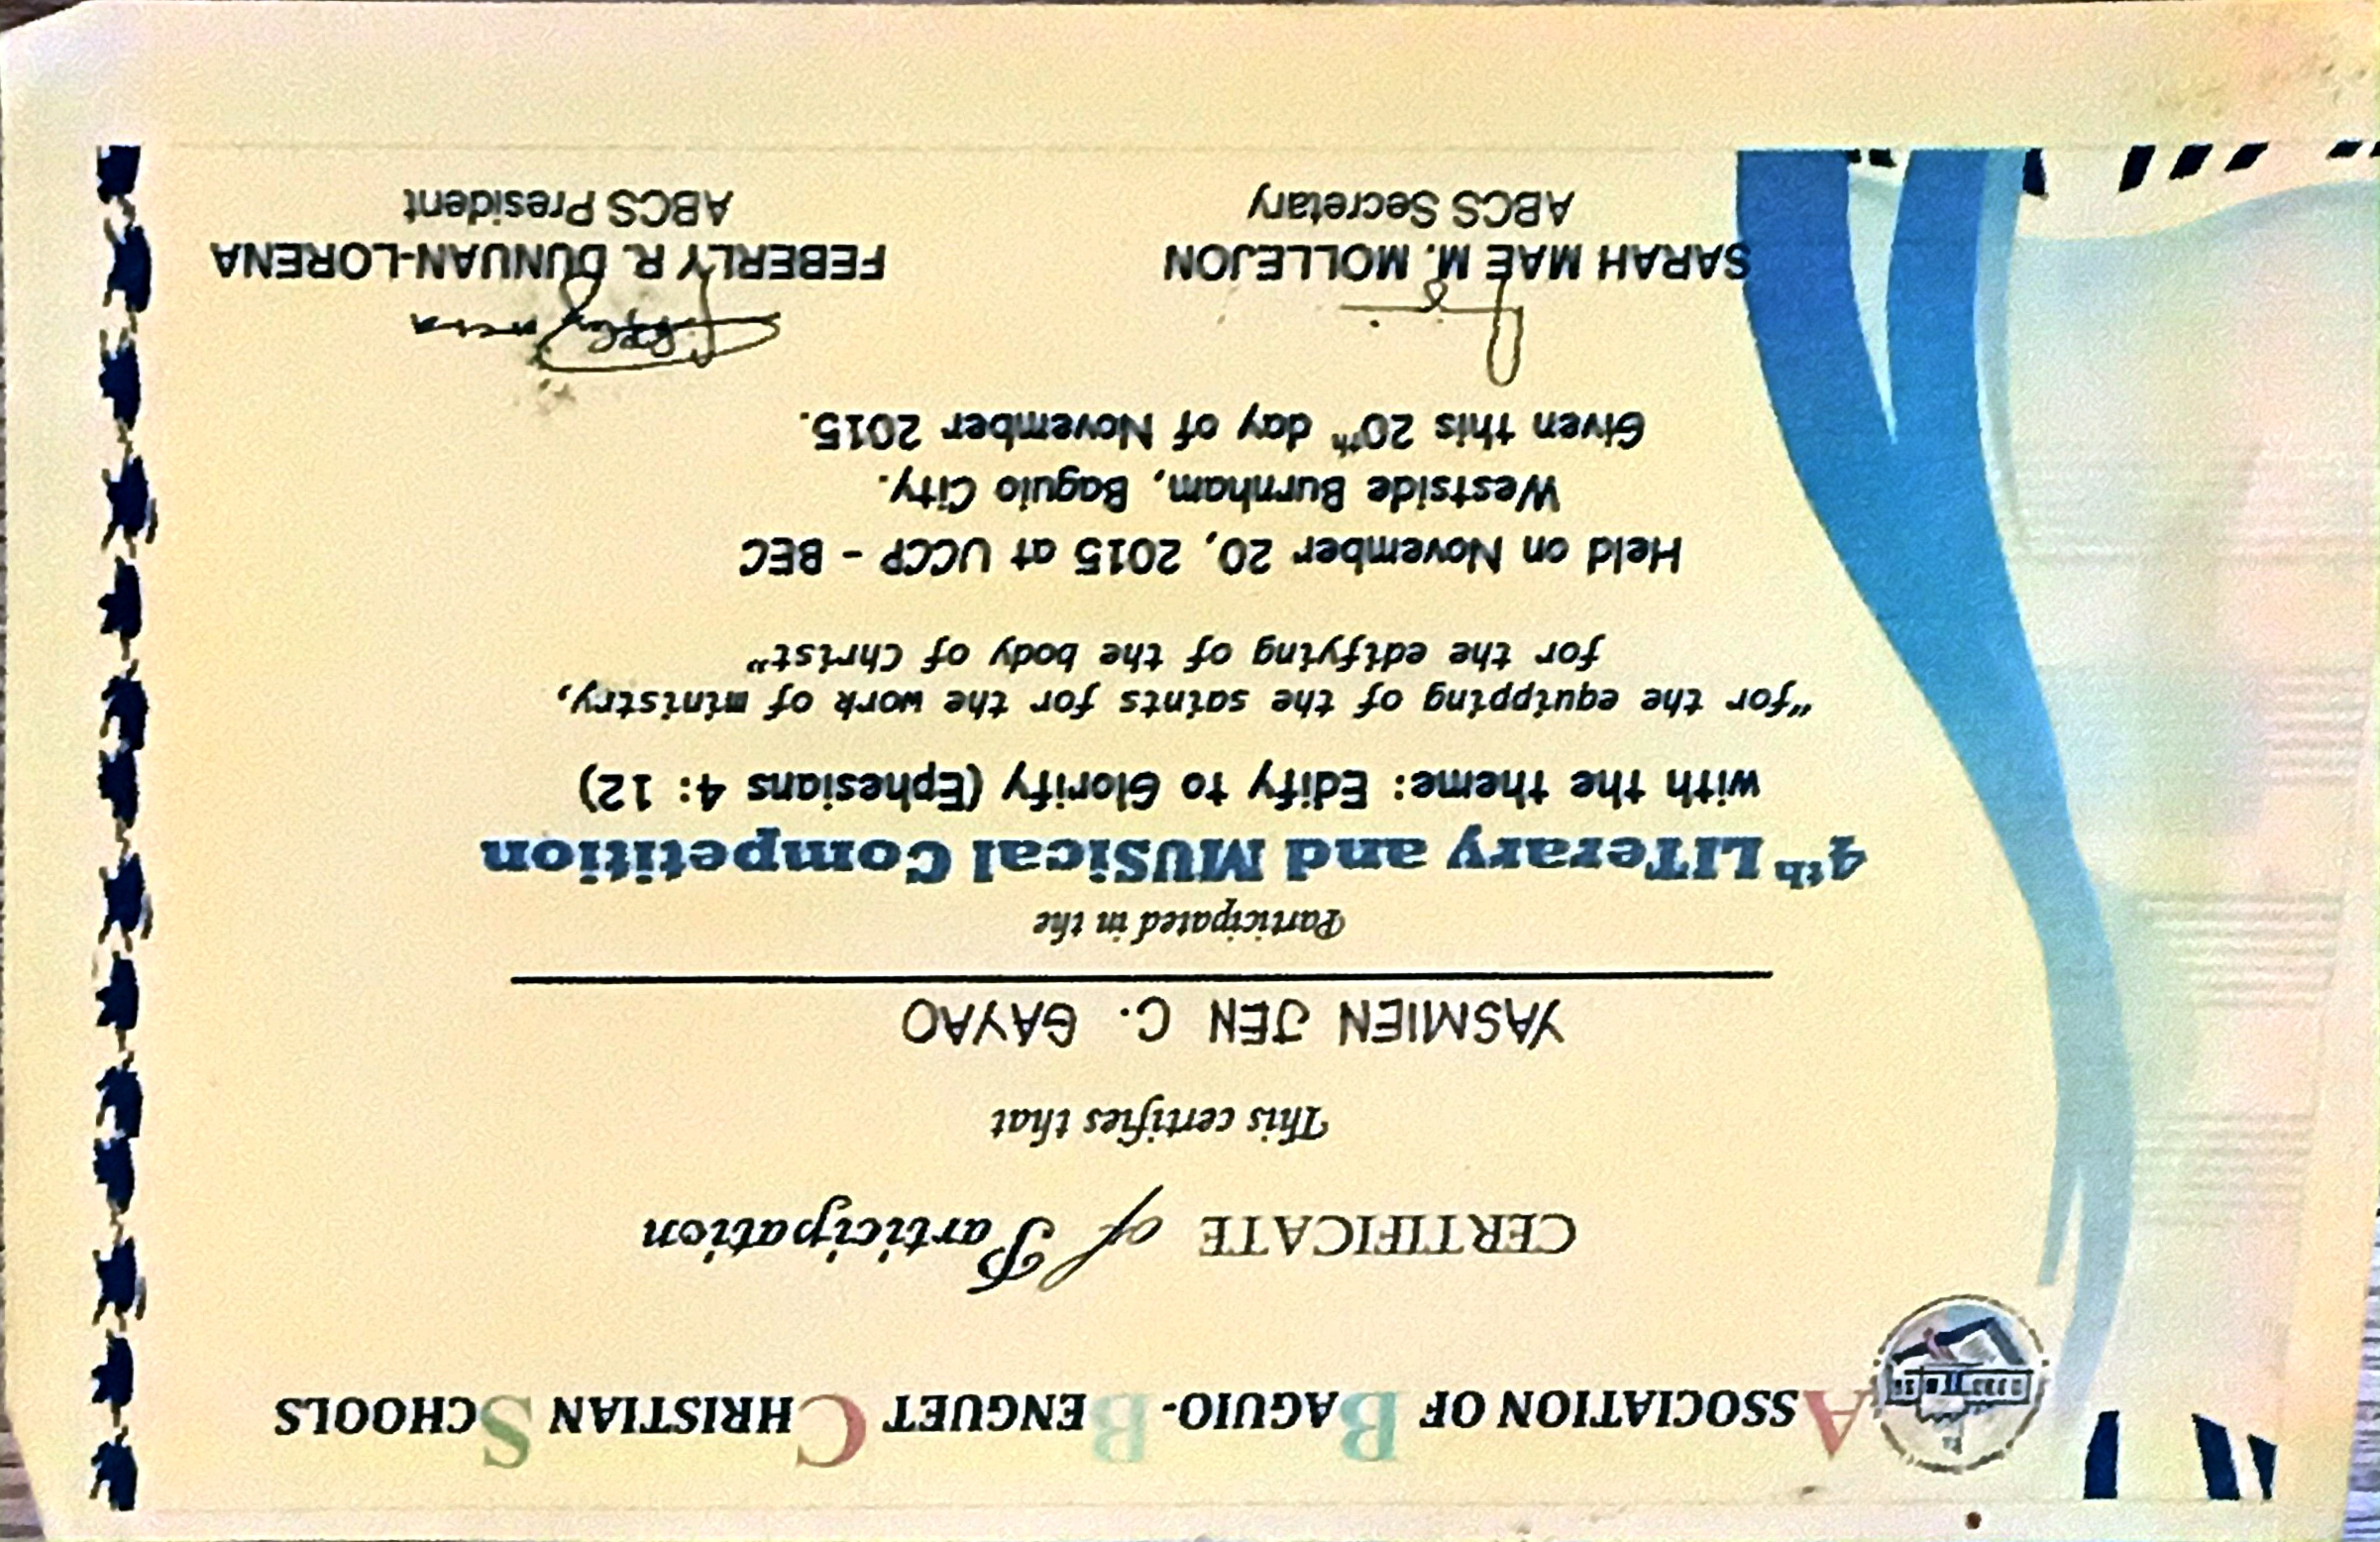 ASSOCIATION OF BAGUIO-BENGUET CHRISTIAN SCHOOLS
CERTIFICATE of Participation
This certifies that
YASMIEN JEN C. GAYAO
Participated in the
4th LITerary and MUSical Competition
with the theme: Edify to Glorify (Ephesians 4: 12)
"for the equipping of the saints for the work of ministry,
for the edifying of the body of Christ"
Held on November 20, 2015 at UCCP - BEC
Westside Burnham, Baguio City.
Given this 20th day of November 2015.
SARAH MAE M. MOLLEJON FEBERLY R. DUNUAN-LORENA
ABCS Secretary ABCS President